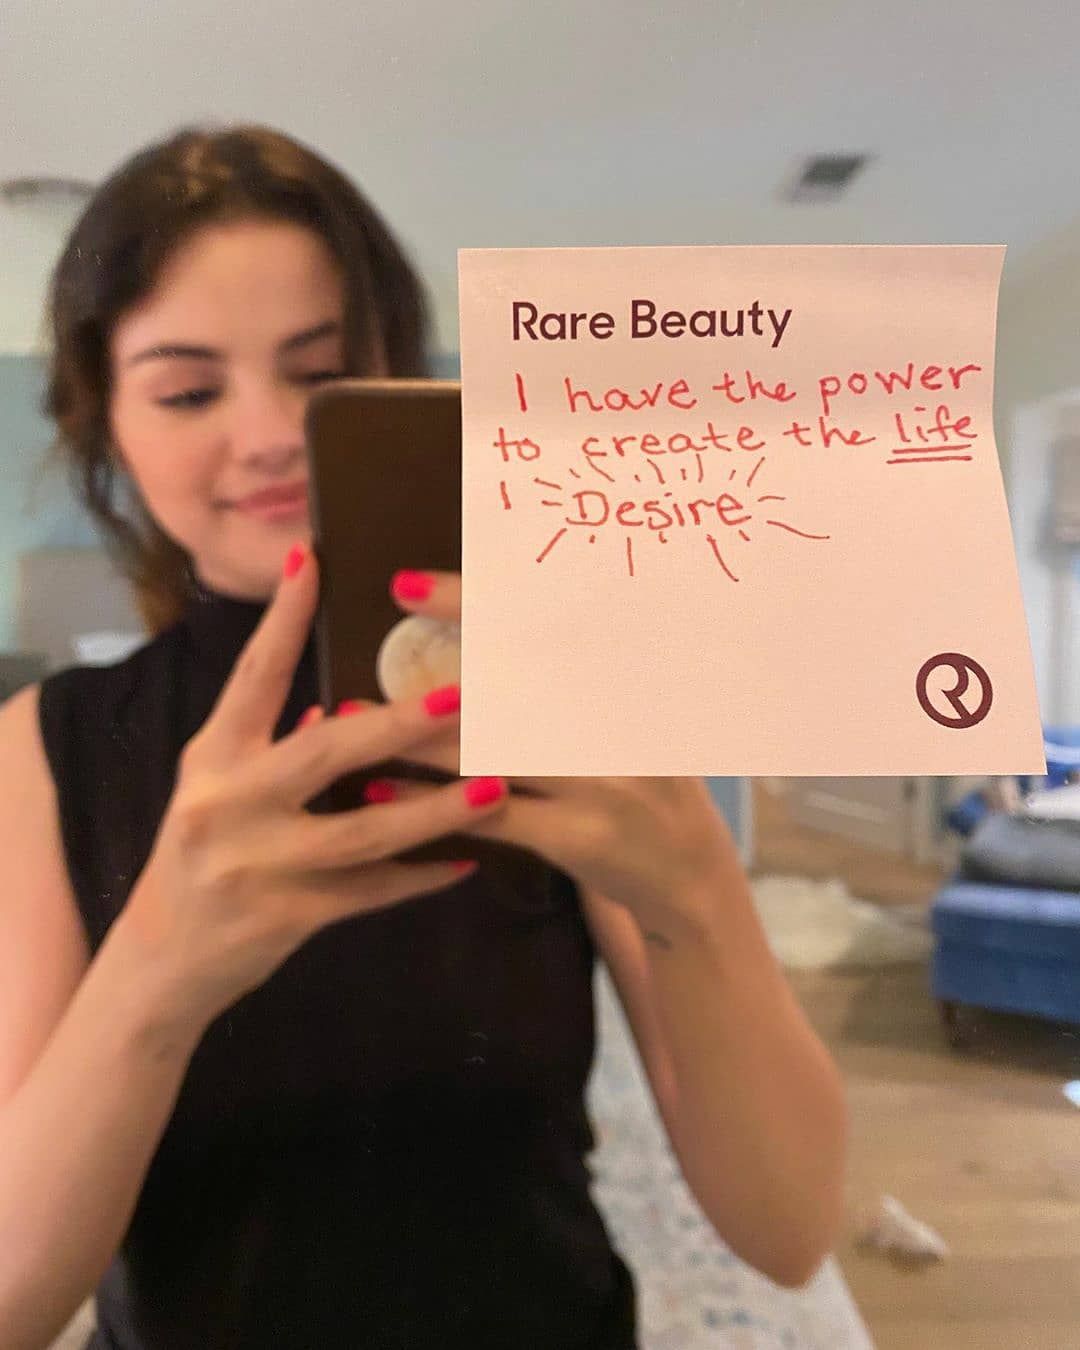 Rare Beauty
I have the power
to create the life
I Desire
R